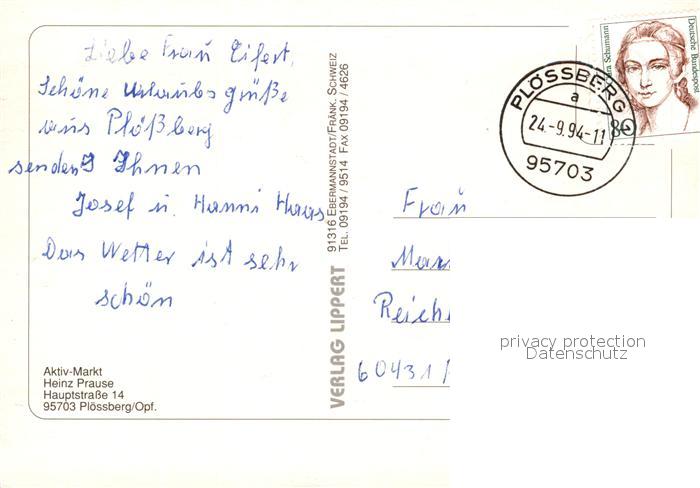 Liebe Frau Eifert,
Schöne Urlaubsgrüße
aus Plößberg
senden Ihnen
Josef u. Hanni Haas
Das Wetter ist sehr
schön
Aktiv-Markt
Heinz Prause
Hauptstraße 14
95703 Plössberg/Opf.
VERLAG LIPPERT
91316 EBERMANNSTADT/FRÄNK. SCHWEIZ
TEL. 09194 / 9514 FAX 09194 / 4626
Clara Schumann
Deutsche Bundespost
80
PLÖSSBERG
a
24.-9.94-11
95703
Frau
60431
privacy protection
Datenschutz